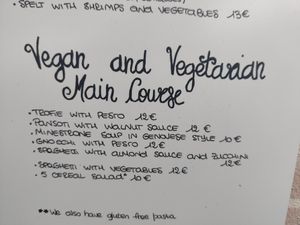 • SPELT WITH SHRIMPS AND VEGETABLES 13€
Vegan and Vegetarian
Main Course
• TROFIE WITH PESTO 12€
• PANSOTI WITH WALNUT SAUCE 12 €
• MINESTRONE SOUP IN GENOVESE STYLE 10€
• GNOCCHI WITH PESTO 12€
• SPAGHETTI WITH ALMOND SAUCE AND ZUCCHINI
12€
• SPAGHETTI WITH VEGETABLES 12€
• 5 CEREAL SALAD* 10€
**We also have gluten free pasta